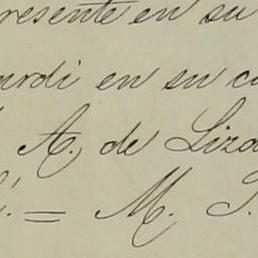 resente en su
urdi en su c
A. de Liza
= M. S.